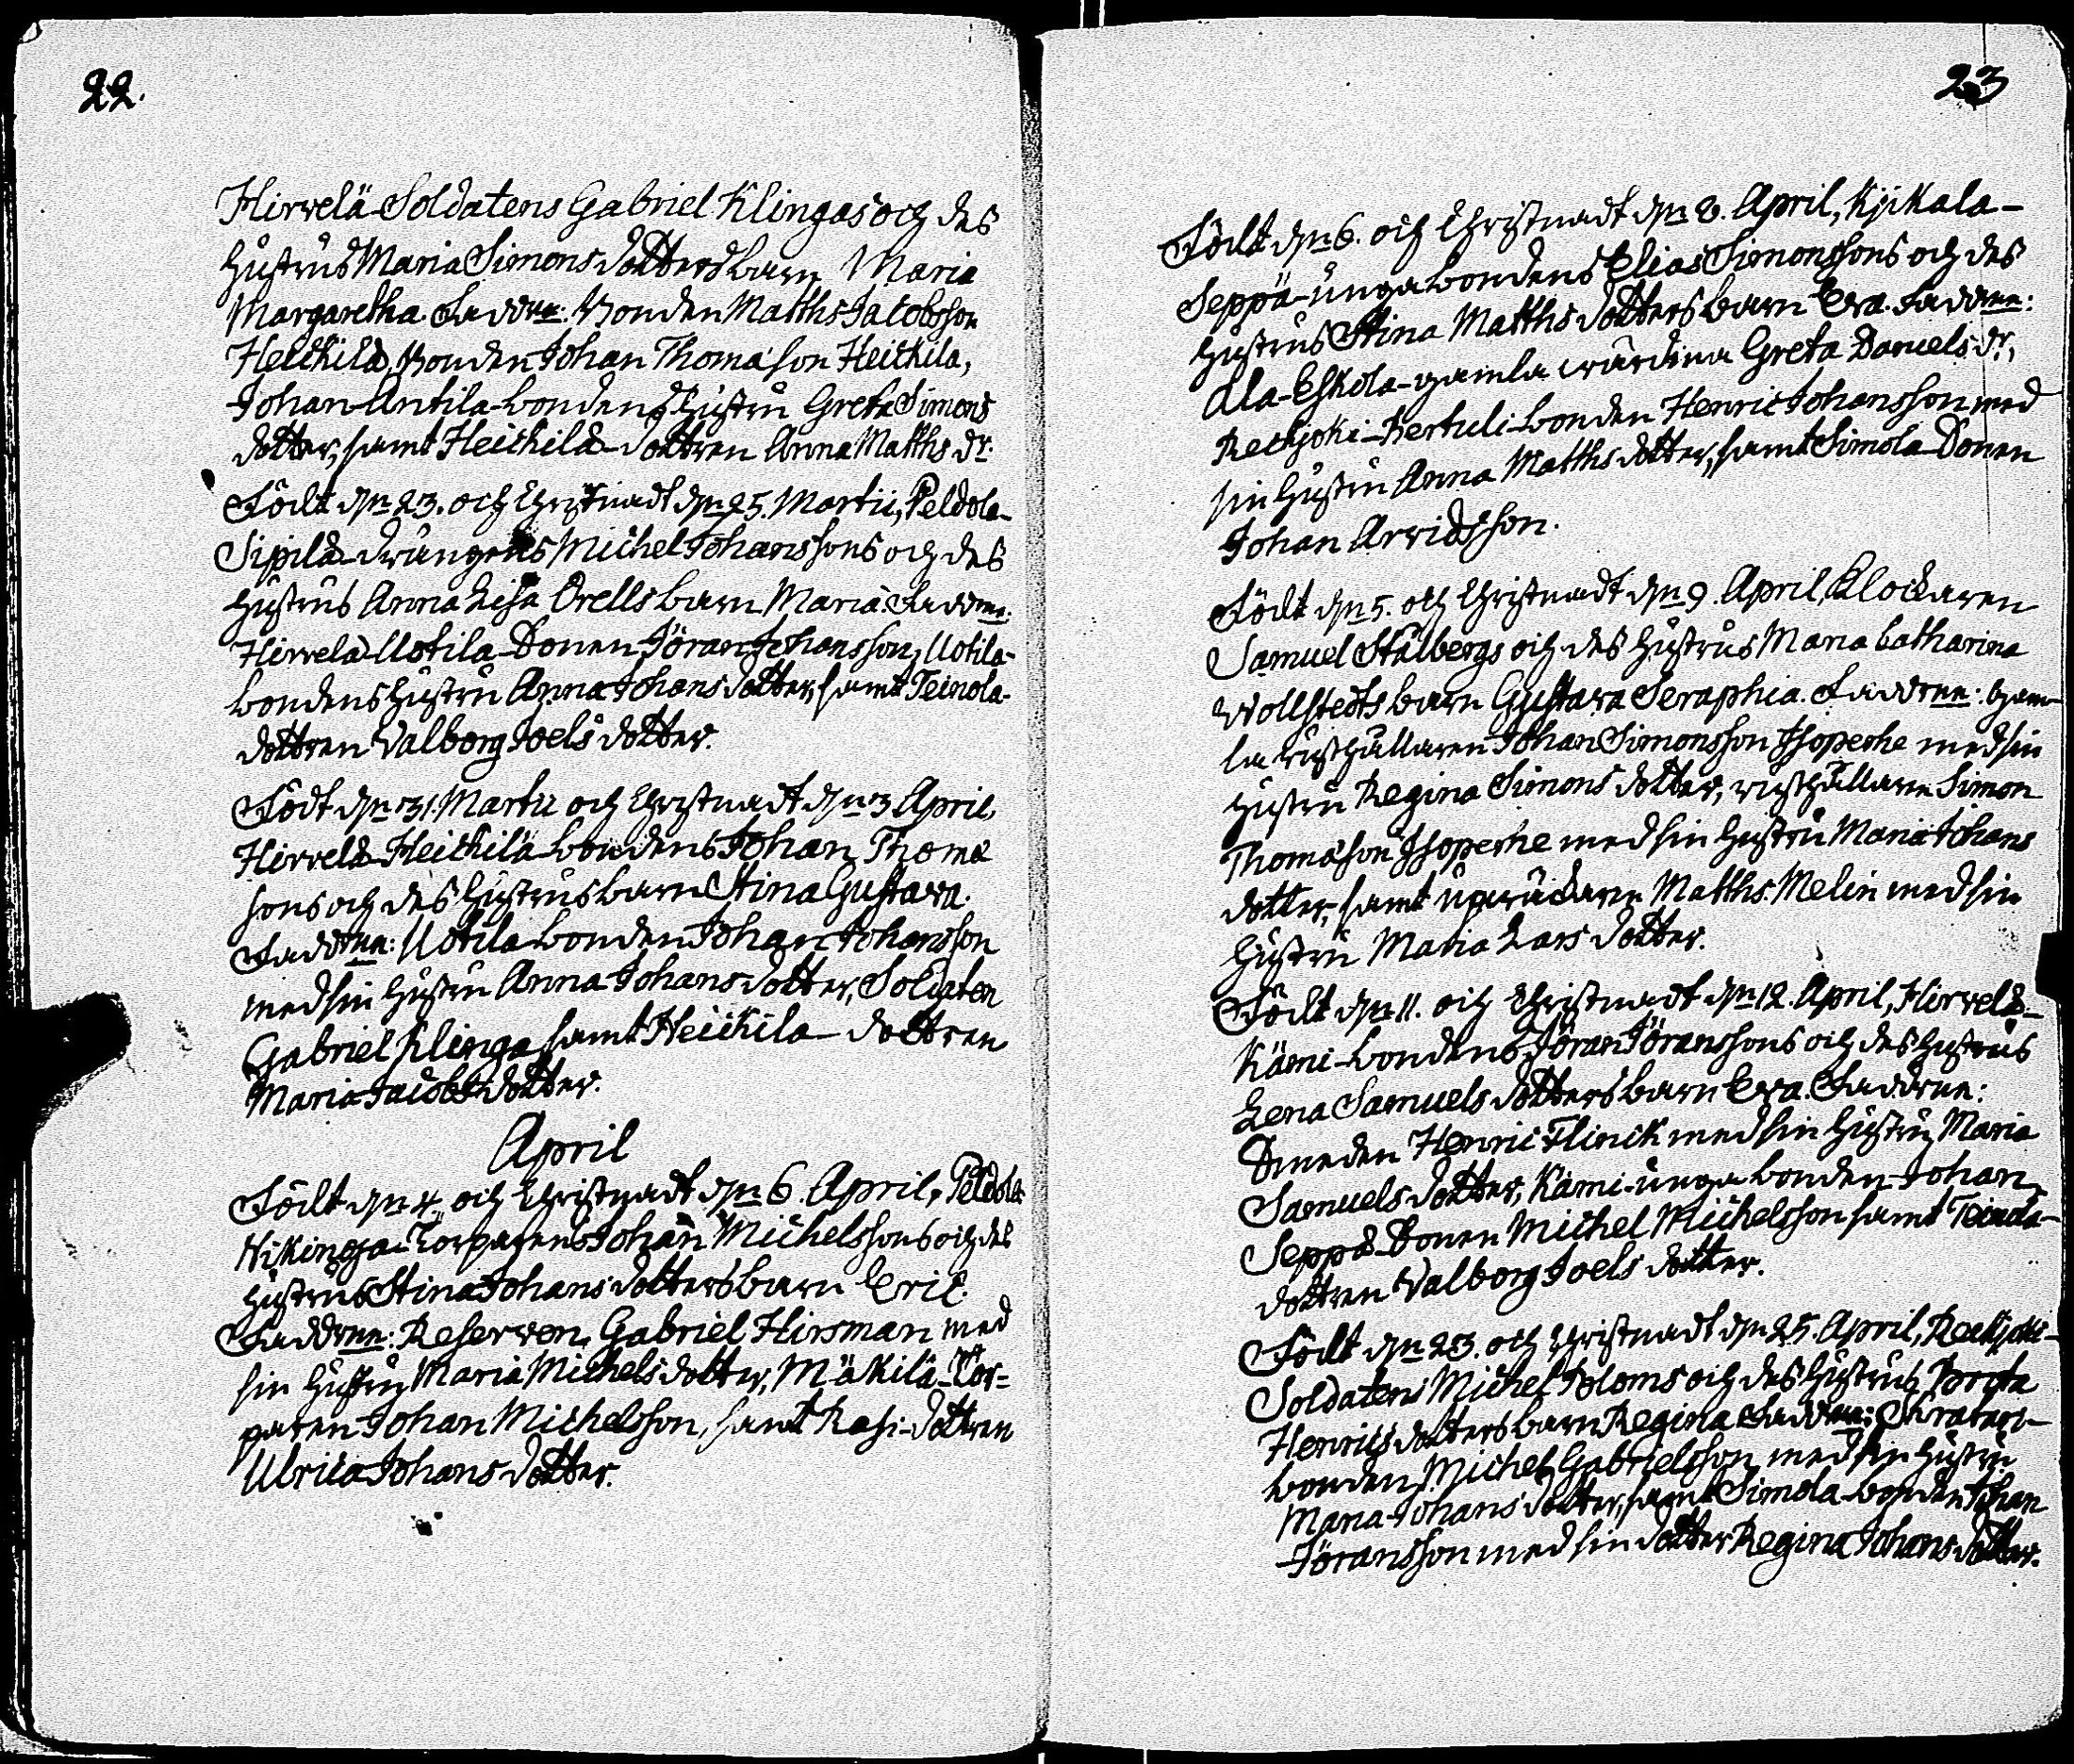 22.
Hirvelä Soldatens Gabriel Klingas och des
hustrus Maria Simons dotters barn Maria
Margaretha. Faddrne: Bonden Matths Jacobsson
Heickilä, Bonden Johan Thomasson Heickila,
Johan Antila-bondens hustru Greta Simons
dotter, samt Heickilä-dottren Anna Matths dr.
Födt dn 23. och Christnadt dn 25. Martii, Peldola-
Sipilä-drängens Michel Johanssons och des
hustrus Anna Lisa Orells barn Maria. Faddrne:
Hirvelä-Uotila-Sonen Jöran Johansson, Uotila-
bondens hustru Anna Johans dotter, samt Teinola-
dottren Valborg Joels dotter.
Födt dn 31. Martii och Christnadt dn 3 April,
Hirvelä-Heickilä-bondens Johan Thoma
sons och des hustrus barn Stina Gustava.
Faddrne: Uotila-bonden Johan Johansson
med sin hustru Anna Johans dotter, Soldaten
Gabriel Klinga, samt Heickila-dottren
Maria Jacobs dotter.
April
Födt dn 4. och Christnadt dn 6. April, Peldola
Nikinoja-Torparens Johan Michelssons och des
hustrus Stina Johans dotters barn Eric.
Faddrne: Reserven Gabriel Hirsman med
sin hustru Maria Michels dotter, Mäkilä-Tor=
paren Johan Michelsson, samt Rasi-dottren
Ulrica Johans dotter.
23
Födt dn 6. och Christnadt dn 8. April, Kjikala-
Seppä-unga bondens Elias Simonssons och des
hustrus Stina Matths dotters barn Eva. Faddrne:
Ala-Eskola-gamla wärdina Greta Daniels dr,
Reckjoki-Pertuli-bonden Henric Johansson med
sin hustru Anna Matths dotter, samt Simola-Sonen
Johan Arvidsson.
Födt dn 5. och Christnadt dn 9. April, Klockaren
Samuel Stålbergs och des hustrus Maria Catharina
Wollstedts barn Gustava Seraphia. Faddrne: Gam-
la rusthållaren Johan Simonsson Isoperhe med sin
hustru Regina Simons dotter, rusthållaren Simon
Thomasson Isoperhe med sin hustru Maria Johans
dotter, samt uparidaren Matths. Melin med sin
hustru Maria Lars dotter.
Födt dn 11. och Christnadt dn 12. April, Hirvelä-
Kämi-bondens Jöran Jöranssons och des hustrus
Lena Samuels dotters barn Eva. Faddrne:
Smeden Henric Flinck med sin hustru Maria
Samuels dotter, Kämi-unga bonden Johan,
Seppä-Sonen Michel Michelsson samt Teinola-
dottren Valborg Joels dotter.
Födt dn 23. och Christnadt dn 25. April, Reckjoki-
Soldatens Michel Bloms och des hustrus Brita
Henrics dotters barn Regina. Faddrne:
bonden Michel Gabrielsson med sin hustru
Maria Johans dotter, samt Simola-bonden Johan
Jöransson med sin dotter Regina Johans dotter.